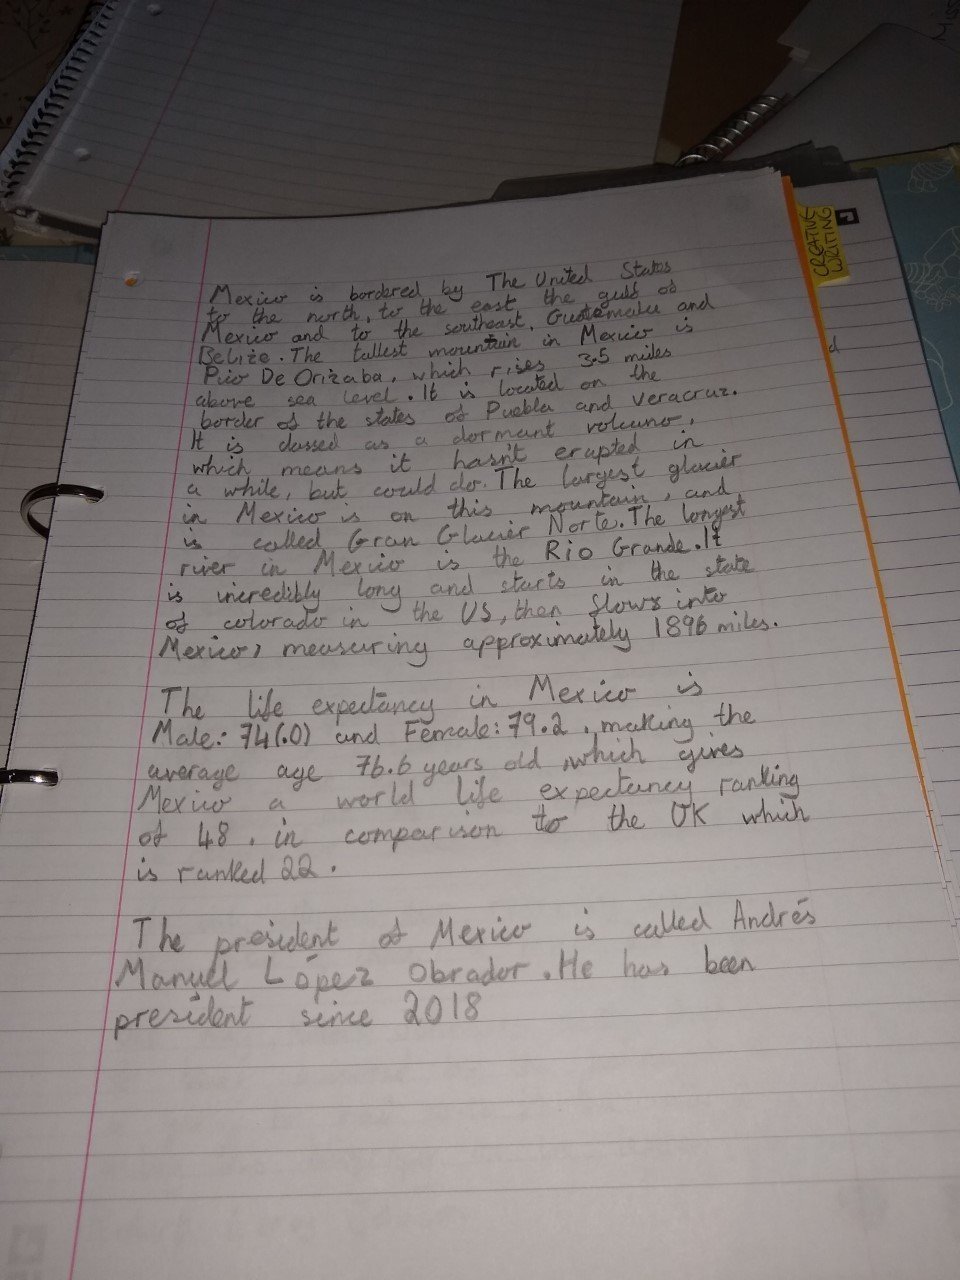 Mexico is bordered by The United States
to the north, to the east, the gulf of
Mexico and to the southeast, Guatemala and
Belize. The tallest mountain in Mexico is
Pico De Orizaba, which rises 3.5 miles
above sea level. It is located on the
border of the states of Puebla and Veracruz.
It is classed as a dormant volcano,
which means it hasn't erupted in
a while, but could do. The largest glacier
in Mexico is on this mountain, and
is called Gran Glacier Norte. The longest
river in Mexico is the Rio Grande. It
is incredibly long and starts in the state
of colorado in the US, then flows into
Mexico, measuring approximately 1896 miles.
The life expectancy in Mexico is
Male: 74(.0) and Female: 79.2, making the
average age 76.6 years old, which gives
Mexico a world life expectancy ranking
of 48, in comparison to the UK which
is ranked 22.
The president of Mexico is called Andrés
Manuel López Obrador. He has been
president since 2018
CREATIVE
WRITING
d